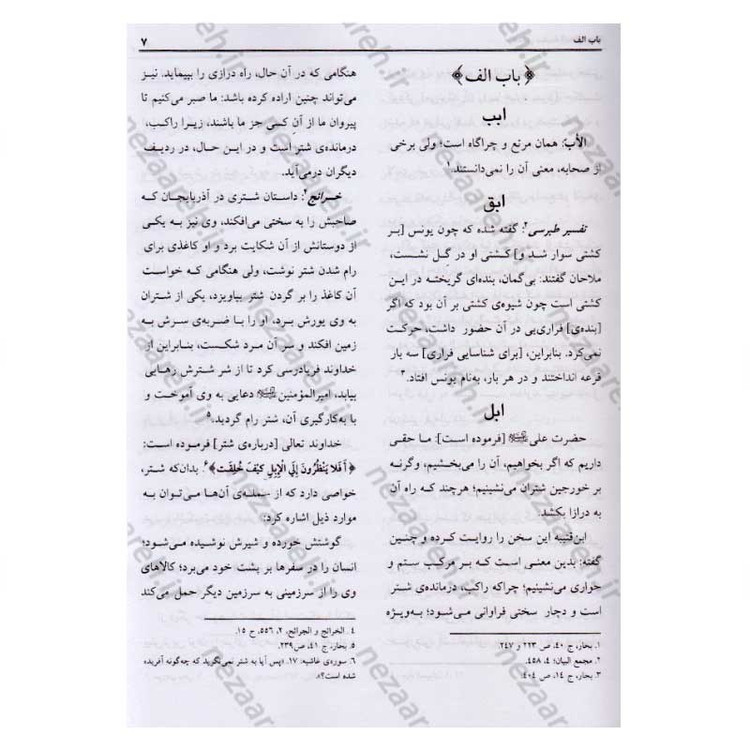 باب الف
۷
﴿باب الف﴾
ابب
الأب: همان مرتع و چراگاه است؛ ولی برخی
از صحابه، معنی آن را نمی‌دانستند.۱
ابق
تفسیر طبرسی۲: گفته شده که چون یونس [بـر
کشتی سوار شـد و] کـشتی او در گـل نشـست،
ملاحان گفتند: بی‌گمان، بنده‌ای گریخته در ایـن
کشتی است چون شیوه‌ی کشتی بر آن بود که اگر
[بنده‌ی] فراری‌یی در آن حضور داشت، حرکت
نمی‌کرد. بنابراین، [برای شناسایی فراری] سه بار
قرعه انداختند و در هر بار، به‌نام یونس افتاد.۳
ابل
حضرت علی [فرموده است]: مـا حقـی
داریم که اگر بخواهیم، آن را می‌بخشیم، وگرنـه
بر خورجین شتران می‌نشینیم؛ هرچند کـه راه آن
به درازا بکشد.
ابن‌قتیبه این سخن را روایت کـرده و چنـین
گفته: بدین معنی است کـه بـر مرکـب سـتم و
خواری می‌نشینیم؛ چراکه راکب، درمانده‌ی شتر
است و دچار سختی فراوانی می‌شود؛ بـه‌ویژه
۱. بحار، ج ۴۰، ص ۲۲۳ و ۲۴۷.
۲. مجمع البیان: ۴، ۴۵۸.
۳. بحار، ج ۱۴، ص ۴۰۴.
هنگامی که در آن حال، راه درازی را بپیماید. نیـز
می‌تواند چنین اراده کرده باشد: ما صبر می‌کنیم تا
پیروان ما از آنِ کسی جز ما باشند، زیـرا راکـب،
درمانده‌ی شتر اسـت و در ایـن حـال، در ردیـف
دیگران درمی‌آید.
خـرائج۴: داسـتان شـتری در آذربایجـان کـه
صاحبش را به سختی می‌افکند، وی نیز به یکـی
از دوستانش از آن شکایت برد و او کاغذی برای
رام شدن شتر نوشت، ولی هنگامی کـه خواسـت
آن کاغذ را بر گردن شتر بیاویزد، یکی از شـتران
به وی یورش بـرد، او را بـا ضـربه‌ی سـرش بـه
زمین افکند و سر آن مرد شکست، بنـابراین از
خداوند فریادرسی کرد تا از شر شـترش رهـایی
بیابد، امیرالمؤمنین دعایی به وی آموخـت و
با به‌کارگیری آن، شتر رام گردید.۵
خداوند تعالی [درباره‌ی شتر] فرمـوده اسـت:
﴿أَ فَلَا یَنْظُرُونَ إِلَی الْإِبِلِ کَیْفَ خُلِقَتْ﴾۶ بدان‌که شـتر،
خواصی دارد که از جمله‌ی آن‌هـا مـی‌تـوان بـه
موارد ذیل اشاره کرد:
گوشتش خورده و شیرش نوشیده می‌شـود؛
انسان را در سفرها بر پشت خود می‌برد؛ کالاهای
وی را از سرزمینی به سرزمین دیگر حمل می‌کند
۴. الخرائج و الجرائح، ۲، ۵۵۶، ح ۱۵.
۵. بحار، ج ۴۱، ص ۲۳۹.
۶. سوره‌ی غاشیه: ۱۷. «پس آیا به شتر نمی‌نگرید که چه‌گونه آفریده
شده است؟».
nezaareh.ir